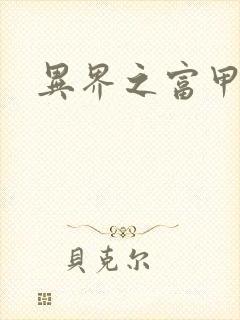 異界之富甲
貝克尔